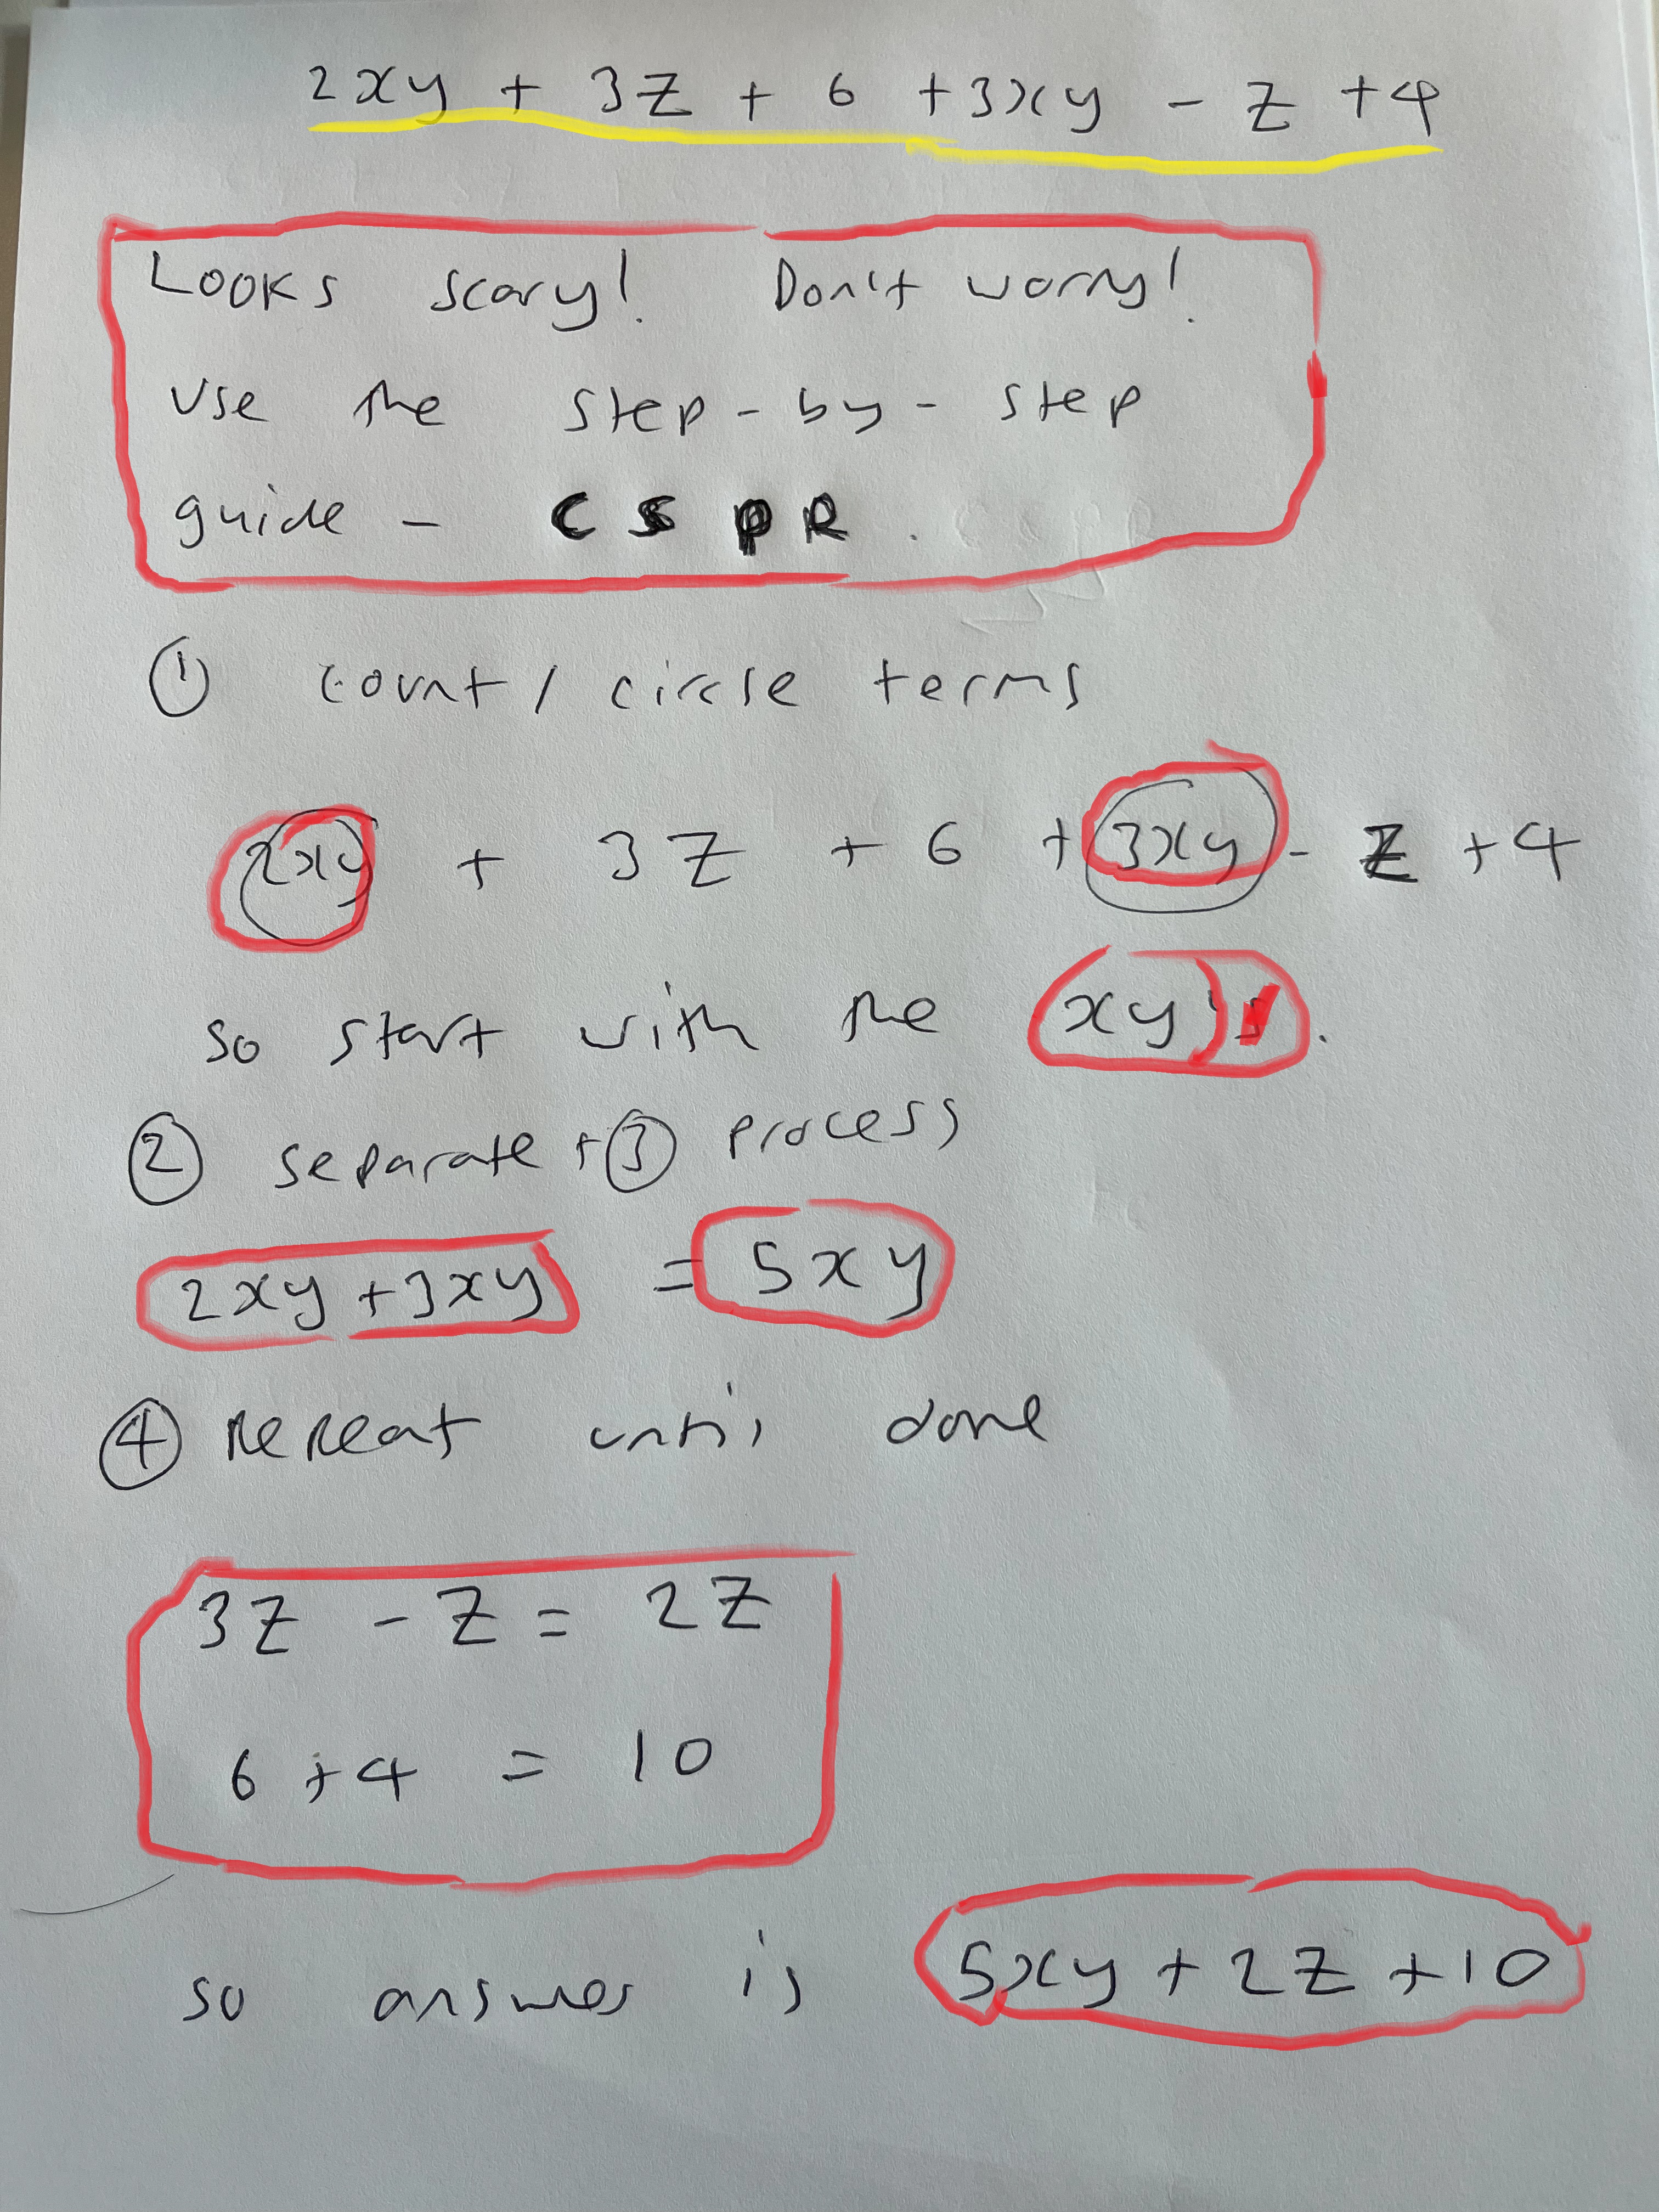 2xy + 3z + 6 + 3xy - z + 4
Looks scary! Don't worry!
Use the step-by-step
guide - CSPR.
① count / circle terms
2xy + 3z + 6 + 3xy - z + 4
so start with the xy's.
② separate + ③ process
2xy + 3xy = 5xy
④ Repeat until done
3z - z = 2z
6 + 4 = 10
so answer is 5xy + 2z + 10